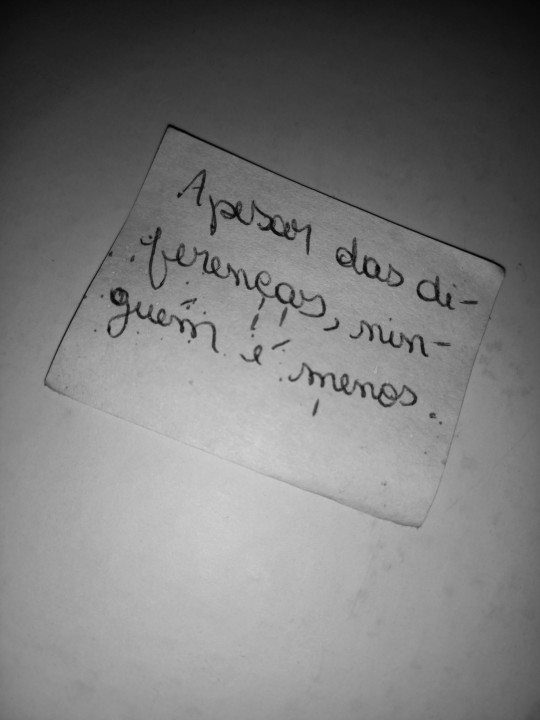 Apesar das di-
ferenças, nin-
guém é menos.